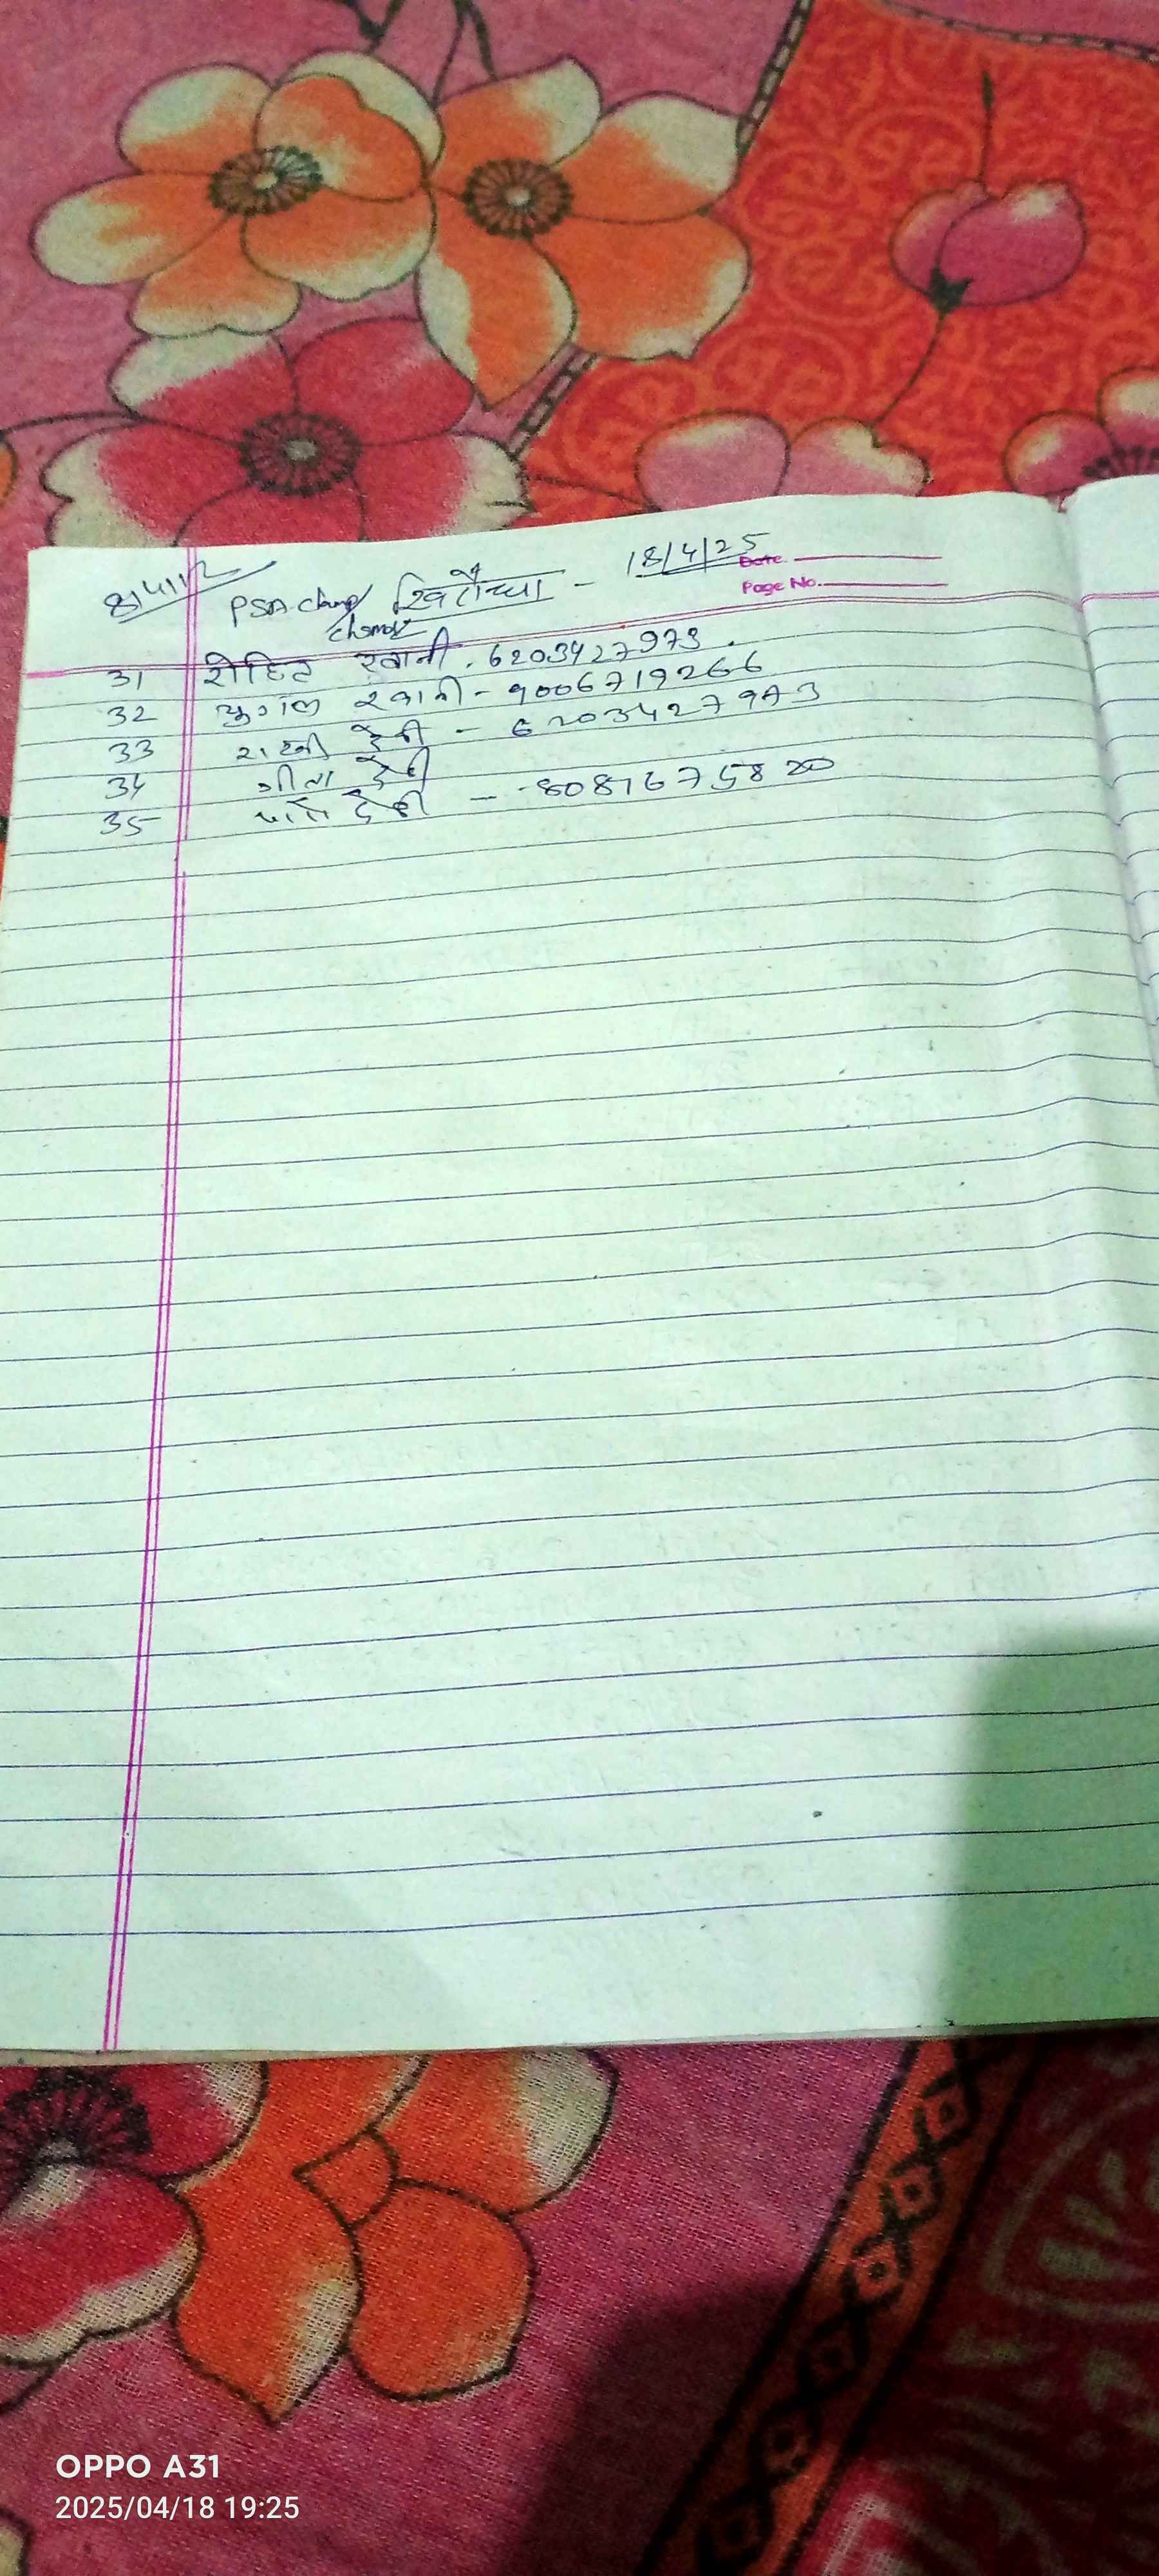 814112
18/4/25
Date.
PSA
Page No.
31 रोहित रवानी . 6203427973 .
32 रवानी - 9006719266
33 राखी देवी - 6203427973
34 गीता देवी
35 देवी - 8081675820
OPPO A31
2025/04/18 19:25